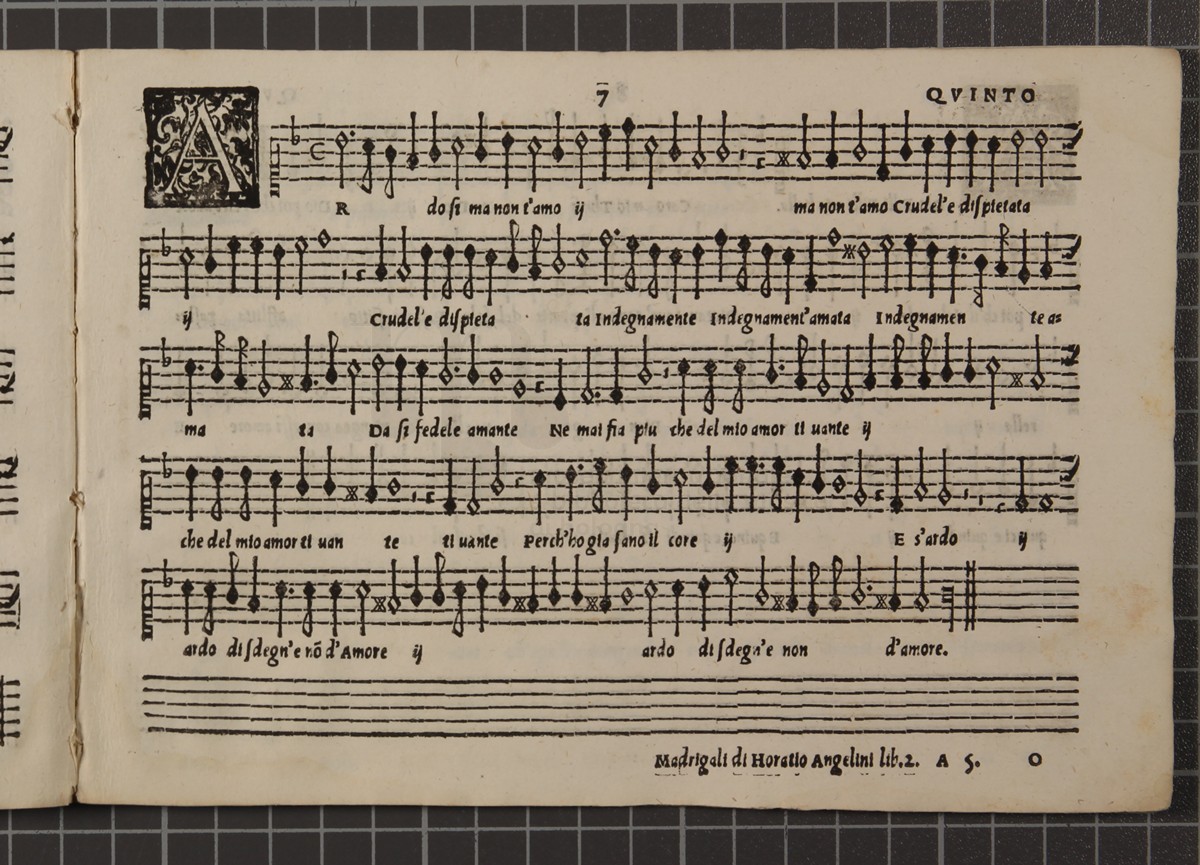 7 QVINTO
A
R do si ma non t'amo ij ma non t'amo Crudel'e dispietata
ij Crudel'e dispieta ta Indegnamente Indegnament'amata Indegnamen te a=
ma ta Da si fedele amante Ne mai fia piu che del mio amor ti uante ij
che del mio amor ti uan te ti uante Perch'ho gia sano il core ij E s'ardo ij
ardo di sdegn'e nõ d'Amore ij ardo di sdegn'e non d'amore.
Madrigali di Horatio Angelini lib.2. A 5. O